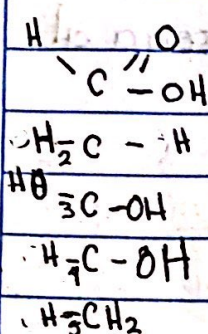 H O
C - OH
H 2 C - H
HO 3 C - OH
H 4 C - OH
H 5 CH2